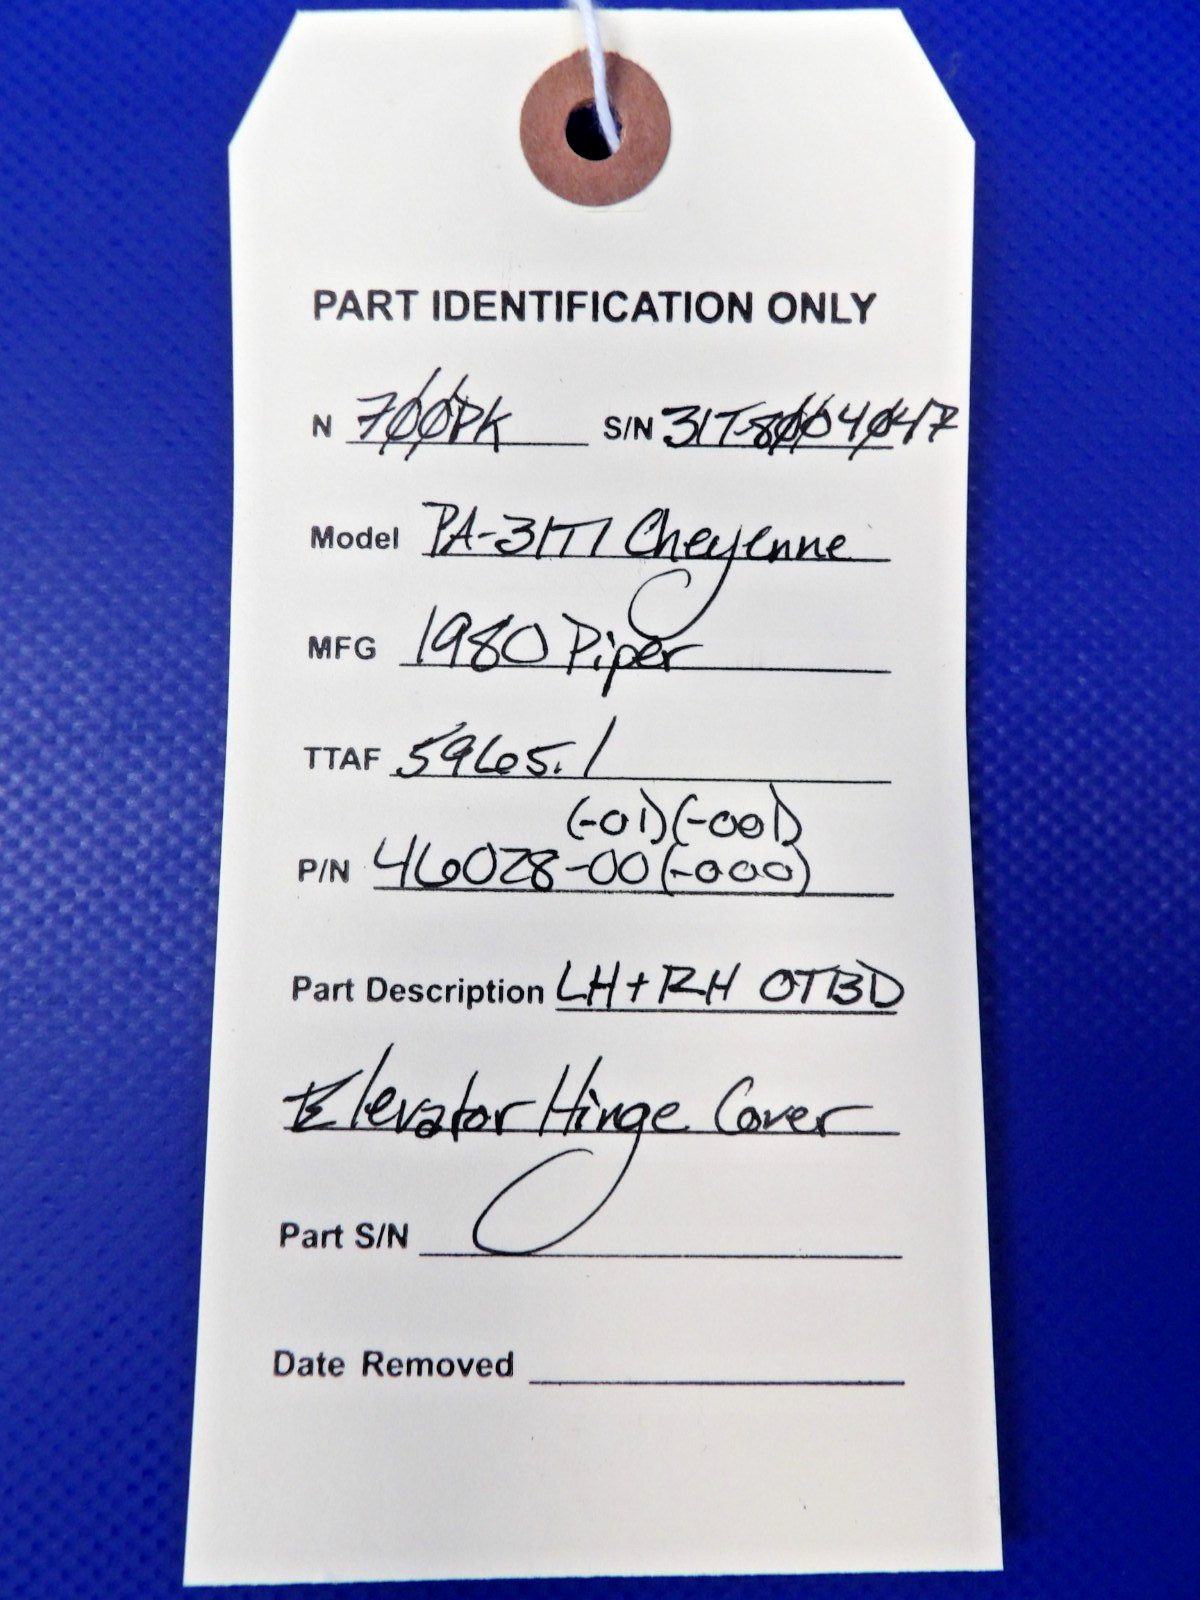 PART IDENTIFICATION ONLY
N 700PK S/N 31T-8004047
Model PA-31T1 Cheyenne
MFG 1980 Piper
TTAF 5965.1
(-01)(-001)
P/N 46028-00(-000)
Part Description LH+RH OTBD
Elevator Hinge Cover
Part S/N
Date Removed